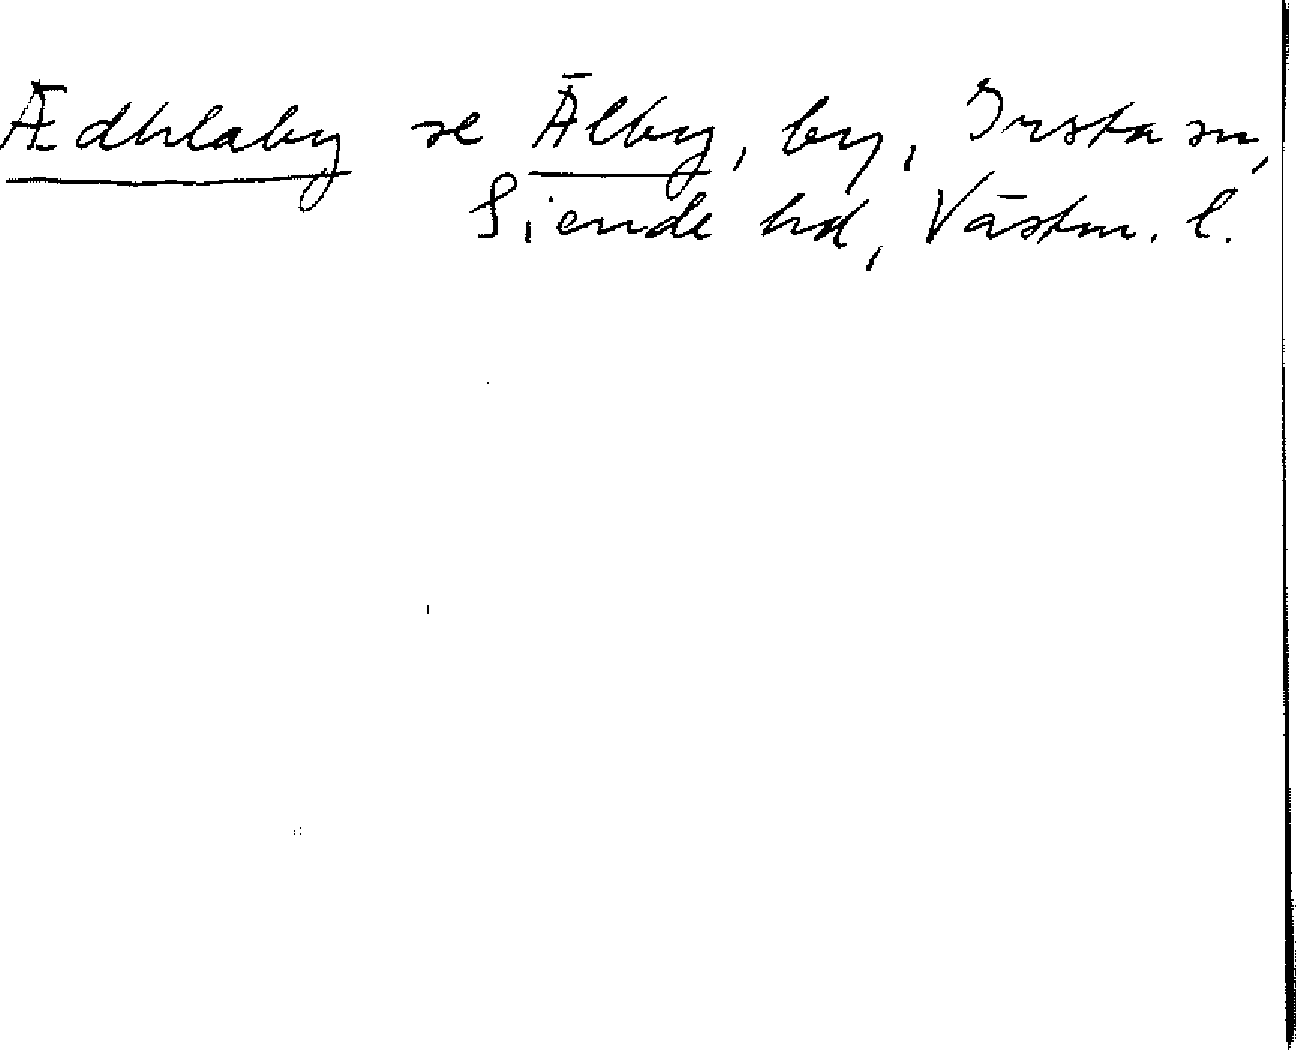 Ædhlaby se Älby, by, Irsta sn,
Siende hd, Västm. l.